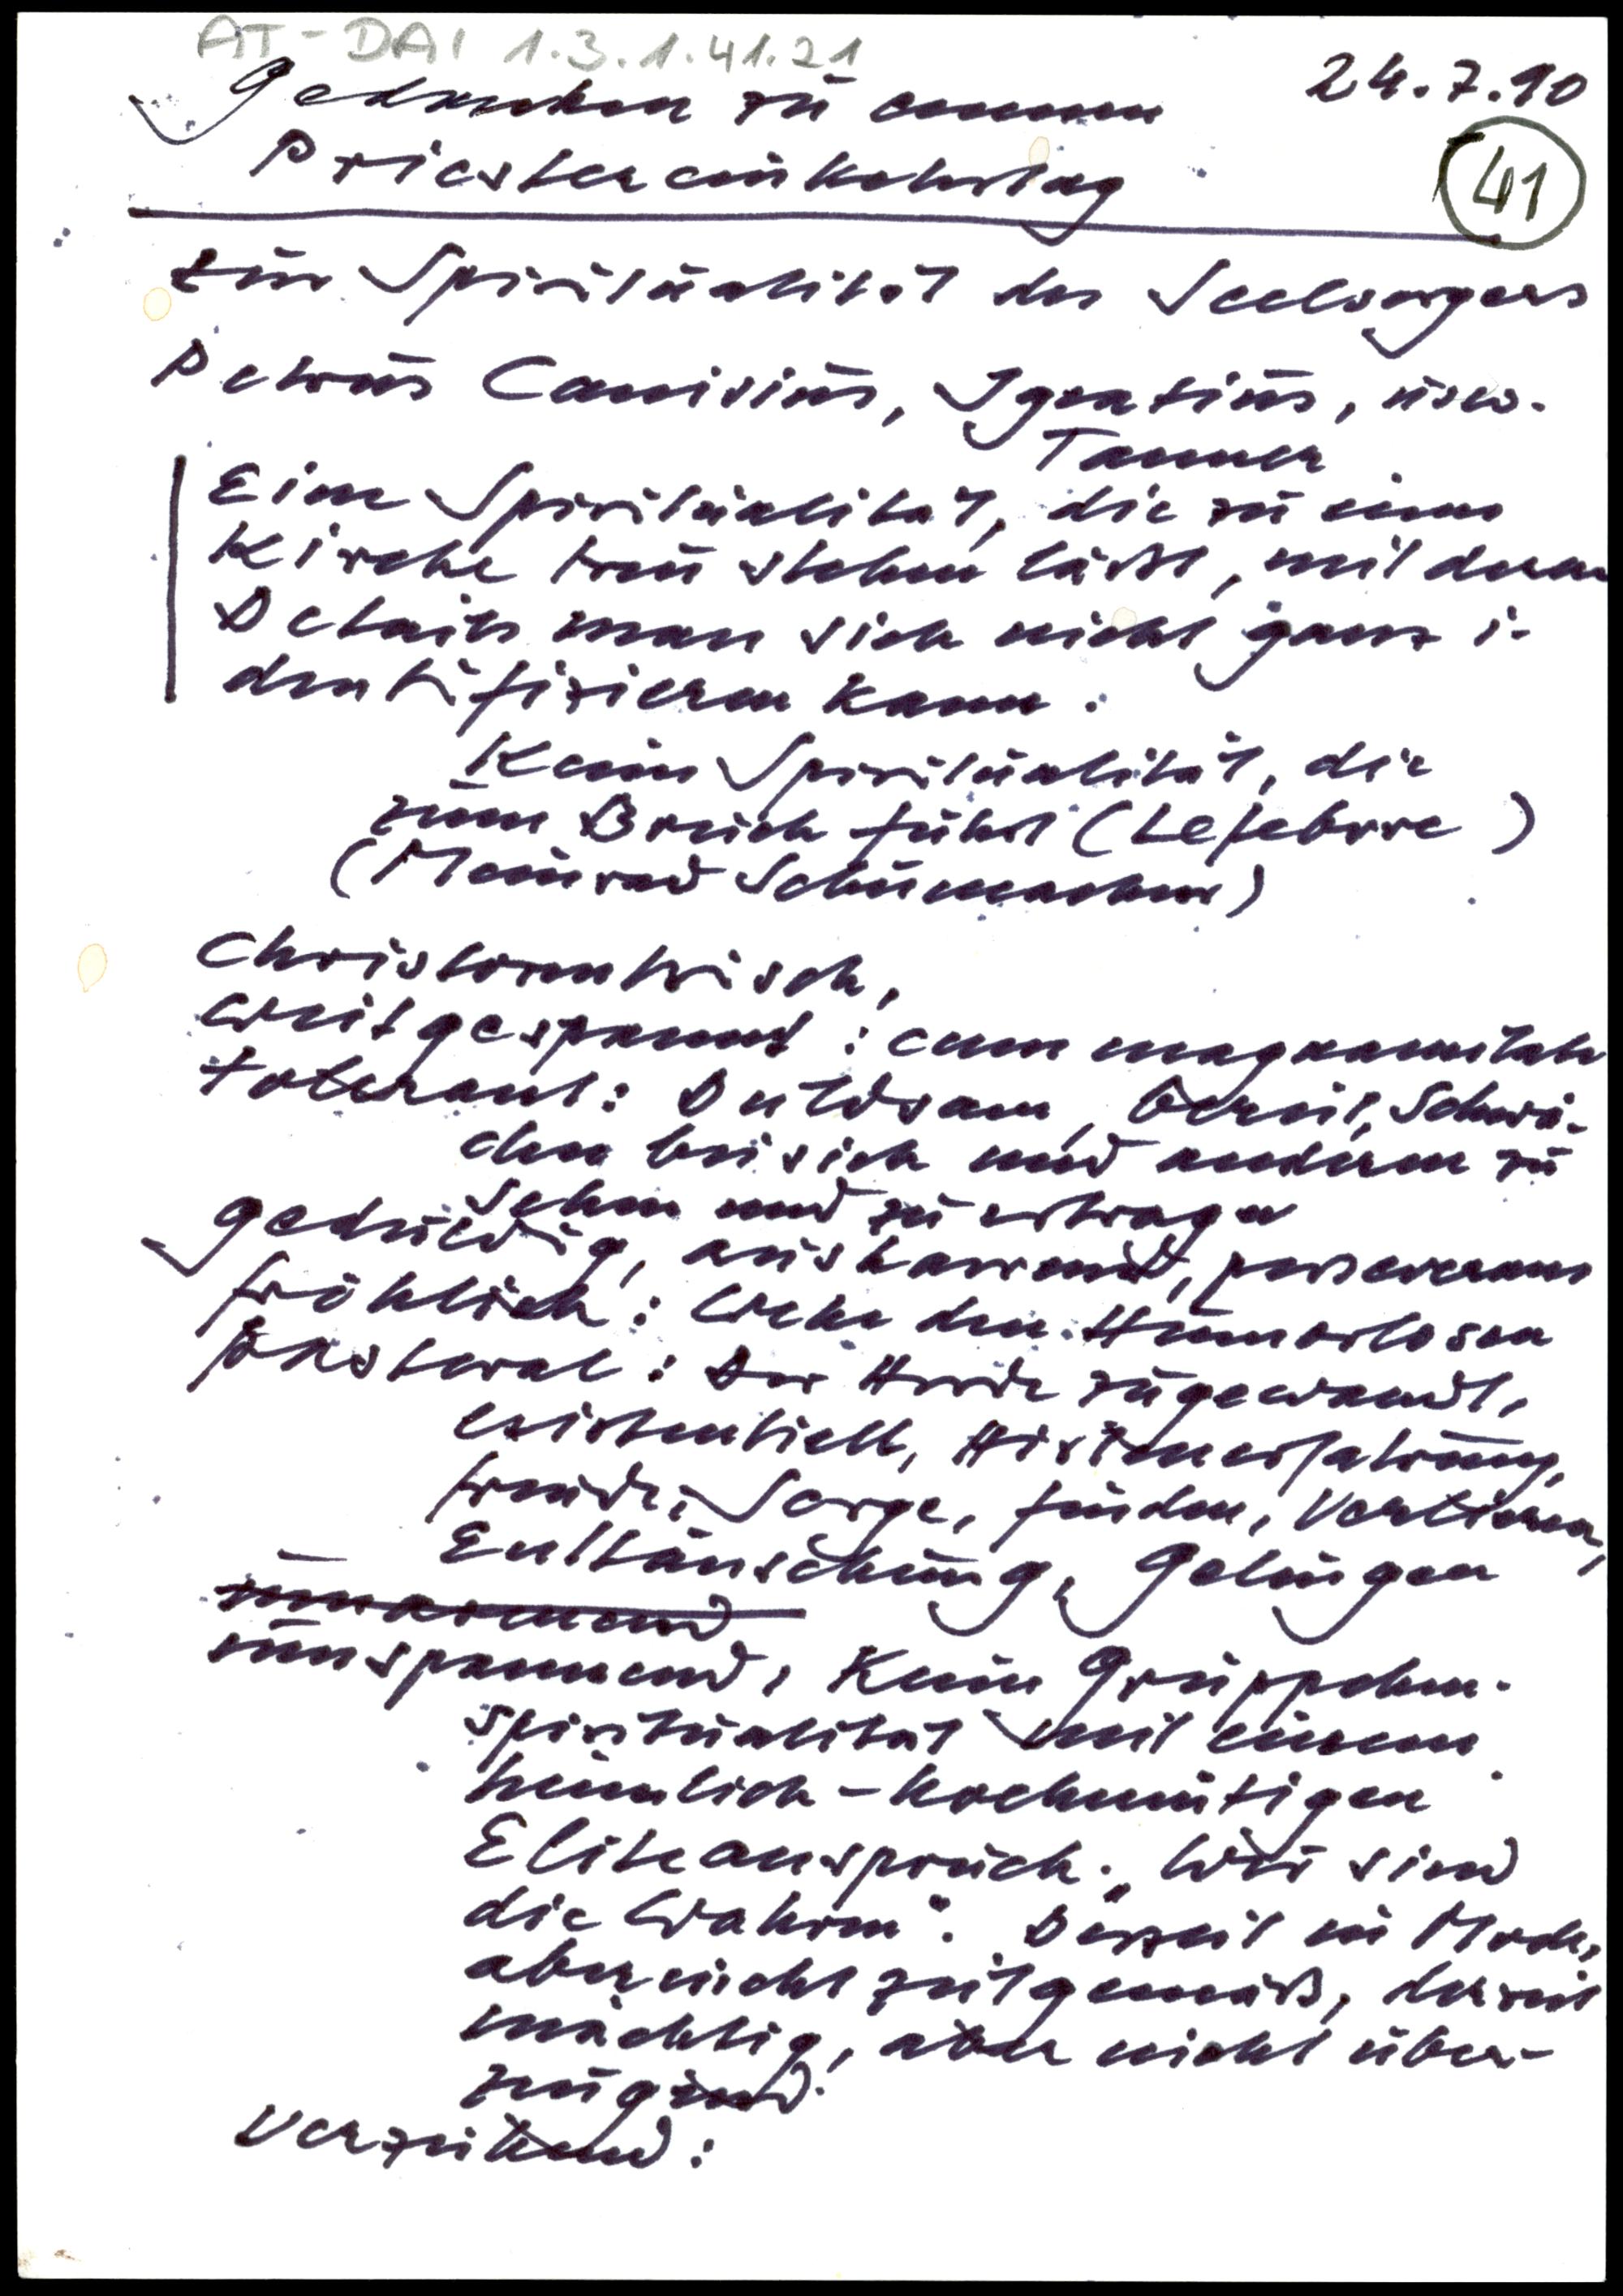 AT-DAI 1.3.1.41.21
24.7.90
Gedanken zu einem
Priestereinkehrtag
41
Zur Spiritualität des Seelsorgers
Petrus Canisius, Ignatius, usw.
Tanner
Eine Spiritualität, die zu einer
Kirche treu stehen läßt, mit deren
Details man sich nicht ganz i-
dentifizieren kann.
Keine Spiritualität, die
zum Bruch führt (Lefebvre)
(Meinrad Schumacher)
Christozentrisch,
weitgespannt: cum magnanimitate
tolerant: Duldsam, bereit, Schwä-
chen bei sich und anderen zu
sehen und zu ertragen
geduldig, ausharrend, perseverans
fröhlich: Wehe den Humorlosen
pastoral: Der Herde zugewandt,
existentiell, Hirtenerfahrung,
Freude, Sorge, finden, Verlieren,
Enttäuschung, Gelingen
umarmend
umspannend, Keine Grüppchen-
spiritualität mit einem
heimlich-hochmütigen
Eliteanspruch. „Wir sind
die Wahren". Derzeit in Mode,
aber nicht zeitgemäß, derzeit
mächtig, aber nicht über-
zeugend.
Verzeihend: